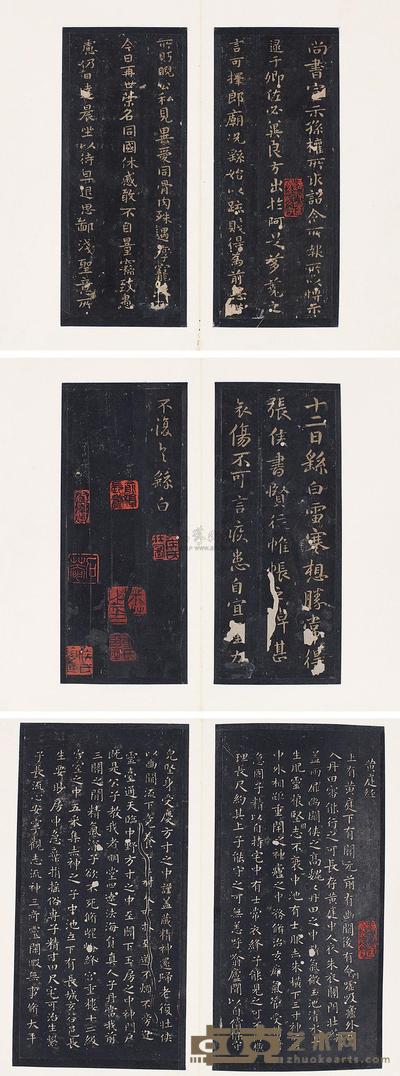 尚書宣示孫權所求詔令所報所以博示
逮于卿佐必冀良方出於阿是芻蕘之
言可擇郎廟況繇始以疏賤得為前恩
所眄睨公私見異愛同骨肉殊遇厚寵
今日再世榮名同國休慼敢不自量竊致愚
慮仍日達晨坐以待旦退思鄙淺聖意所
十二日繇白雪寒想勝常得
張侯書賢從帷帳之悼甚
哀傷不可言疾患自宜量力
不復具繇白
黃庭經
上有黃庭下有關元前有幽闕後有命門噓吸廬外出
入丹田審能行之可長存黃庭中人衣朱衣關門壯籥
蓋兩扉幽闕俠之高魏魏丹田之中精氣微玉池清水上
生肥靈根堅志不衰中池有士服赤朱橫下三寸神所居
中外相距重閉之神廬之中務修治玄氣管受精符
急固子精以自持宅中有士常衣絳子能見之可不病橫
理長尺約其上子能守之可無恙呼噏廬間以自償保守
完堅身受慶方寸之中謹蓋藏精神還歸老復壯俠
以幽闕流下竟養子玉樹令可杖至道不煩不旁迕
靈臺通天臨中野方寸之中至關下玉房之中神門戶
既是公子教我者明堂四達法海員真人子丹當我前
三關之間精氣深子欲不死修崑崙絳宮重樓十二級
宮室之中五采集赤神之子中池立下有長城玄谷邑長
生要眇房中急棄捐搖俗專子精寸田尺宅可治生繫
子長流心安寧觀志流神三奇靈閑暇無事修太平